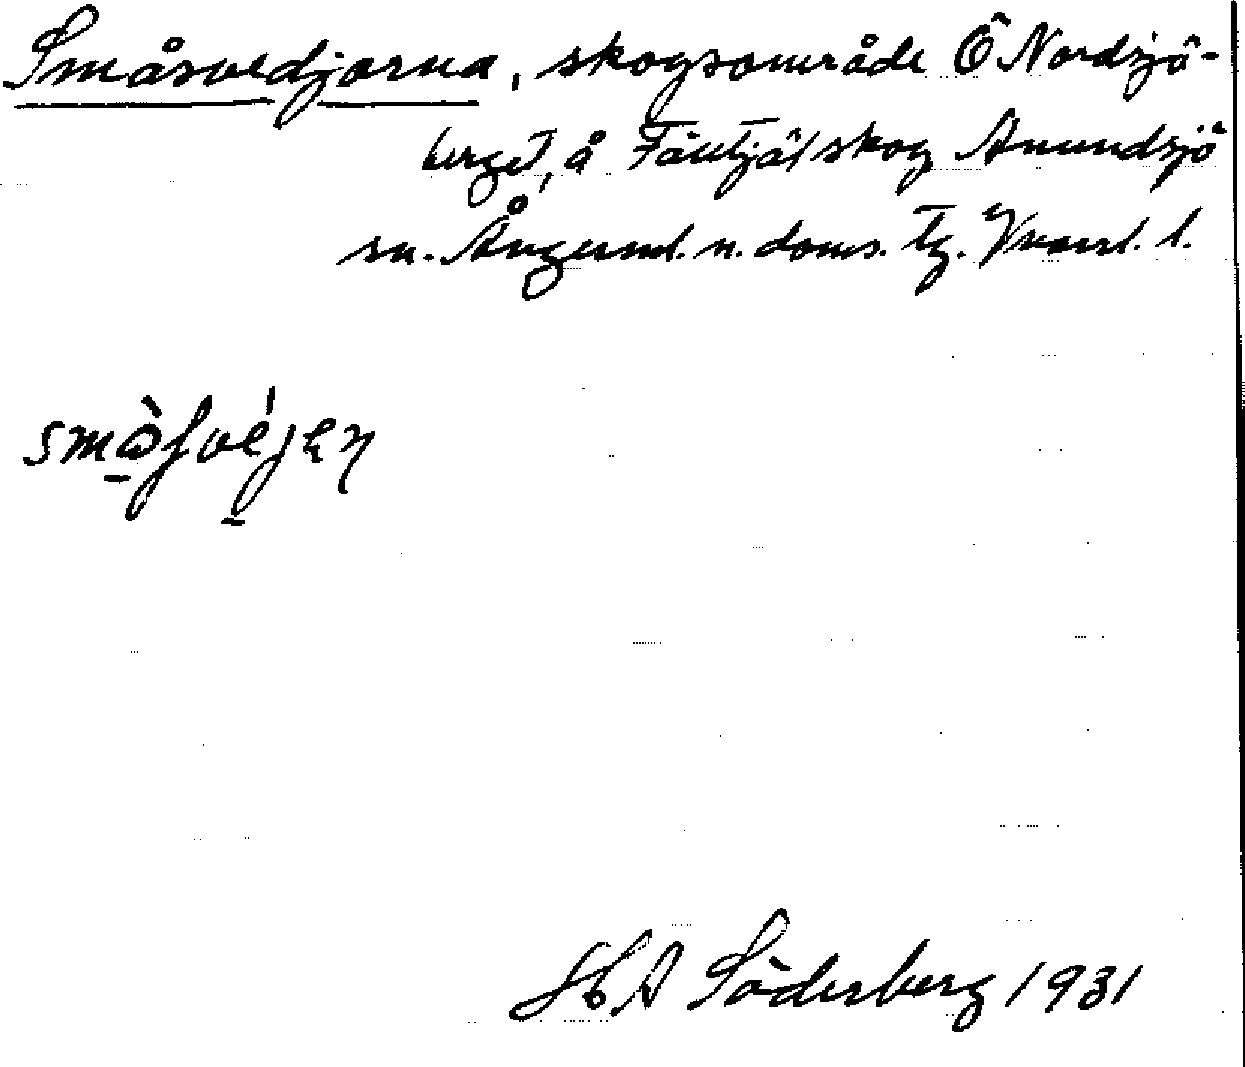 Småsvedjorna, skogsområde Ö Nordsjö-
berget, å Fäntjäl skog Anundsjö
sn. Ångerml. n. doms. tg. Vnorrl. l.
HA Söderberg 1931